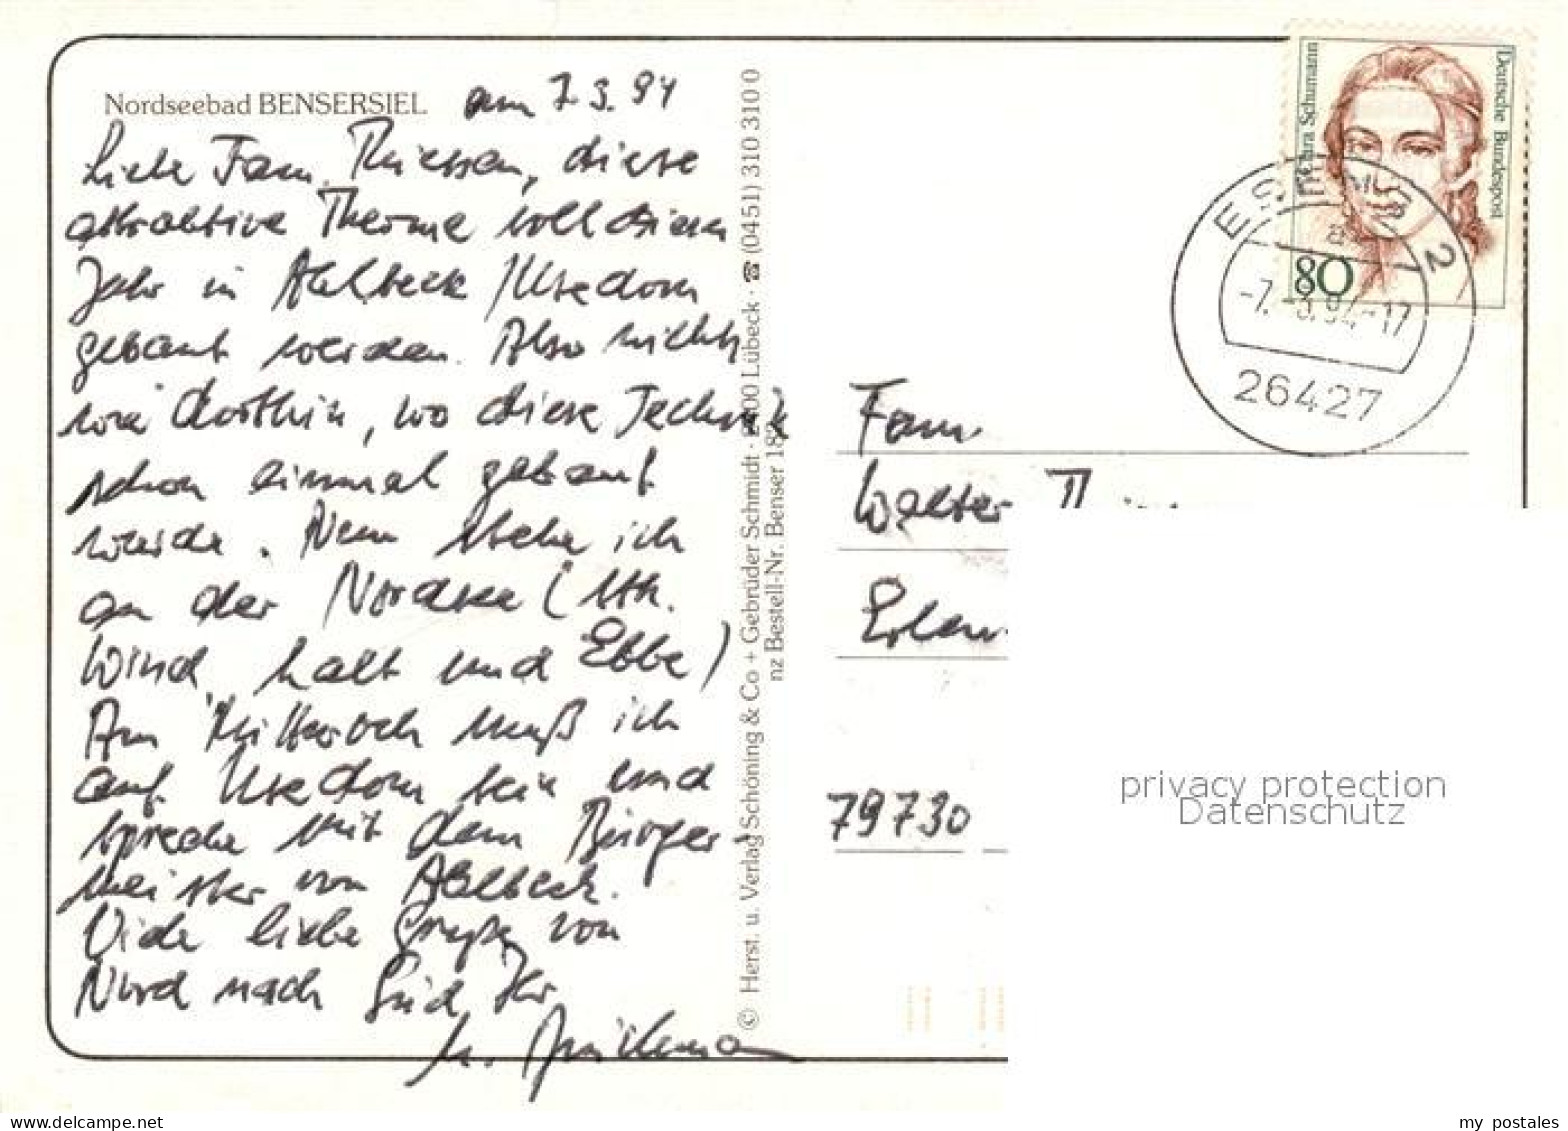 Nordseebad BENSERSIEL am 7.3.94
Liebe Fam. Thiessen, diese
attraktive Therme soll diesen
Jahr in Ahlbeck / Usedom
gebaut werden. Also nichts
wie dorthin, wo diese Technik
schon einmal gebaut
wurde. Nun stehe ich
an der Nordsee (
Wind, kalt und Ebbe)
Am Mittwoch muß ich
auf Usedom sein und
spreche mit dem Bürger-
meister von Ahlbeck.
Viele liebe Grüße von
Nord nach Süd Ihr
© Herst. u. Verlag Schöning & Co + Gebrüder Schmidt · 00 Lübeck · ☎ (0451) 310 310 0
nz Bestell-Nr. Benser 18
Clara Schumann
Deutsche Bundespost
80
ESENS 2
a
-7.-3.94-17
26427
Fam.
Walter
79730
privacy protection
Datenschutz
www.delcampe.net
my postales